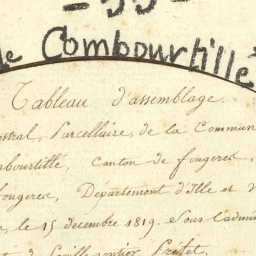 - 33 -
de Combourtillé
Tableau d'assemblage
astral, Parcellaire, de la Commun
mbourtillé, canton de fougeres,
fougeres, Département d'Ille et V
r, le 15 décembre 1819. Sous l'admin
Préfet,